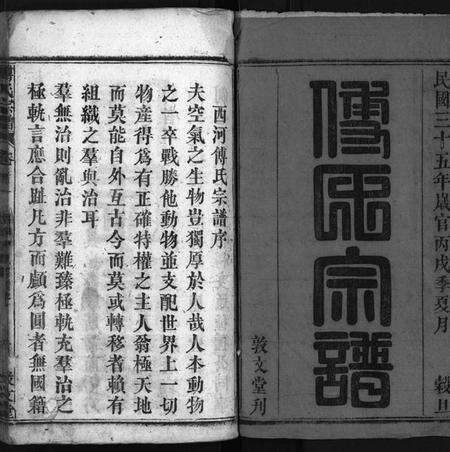 民國三十五年歲官丙戌季夏月 穀旦
傅氏宗譜
敦文堂刊
西河傅氏宗譜序
夫空氣之生物豈獨厚於人哉人本動物
之一卒戰勝他動物並支配世界上一切
物產得為有正確特權之主人翁極天地
而莫能自外亙古今而莫或轉移者賴有
組織之羣與治耳
羣無治則亂治非羣難臻極軌充羣治之
極軌言應合趾凡方而顱為圓者無國籍
敦文堂